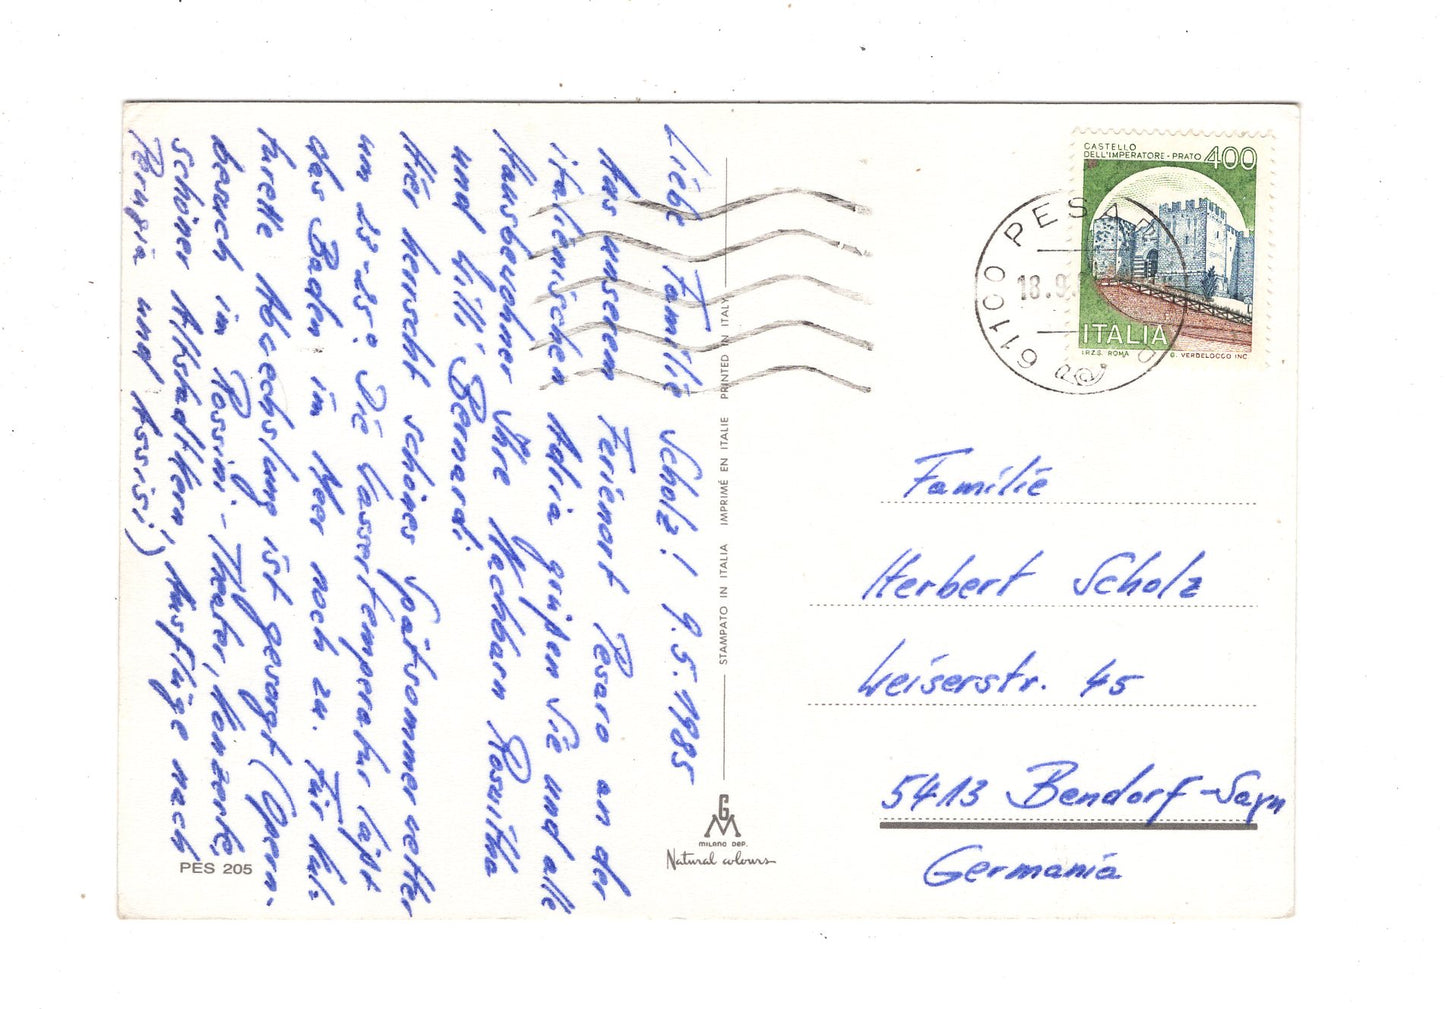 Liebe Familie Scholz! 9.5.1985
Aus unserem Ferienort Pesaro an der
italienischen Adria grüßen Sie und alle
Hausbewohner Ihre Nachbarn Roswitha
und Willi Bernardi.
Hier herrscht schönes Spätsommerwetter
um 23-25°. Die Wassertemperatur läßt
das Baden im Meer noch zu. Für kul-
turelle Abwechslung ist gesorgt (Opern-
besuch in Rossini-Theater, Konzerte,
schöner Altstadtkern, Ausflüge nach
Perugia und Assisi)
PES 205
STAMPATO IN ITALIA IMPRIMÉ EN ITALIE PRINTED IN ITALY
GM
MILANO DEP.
Natural colours
CASTELLO
DELL'IMPERATORE - PRATO 400
ITALIA
I.P.Z.S. ROMA G. VERDELOCCO INC.
61100 PESARO
18.9.
Familie
Herbert Scholz
Weiserstr. 45
5413 Bendorf-Sayn
Germania